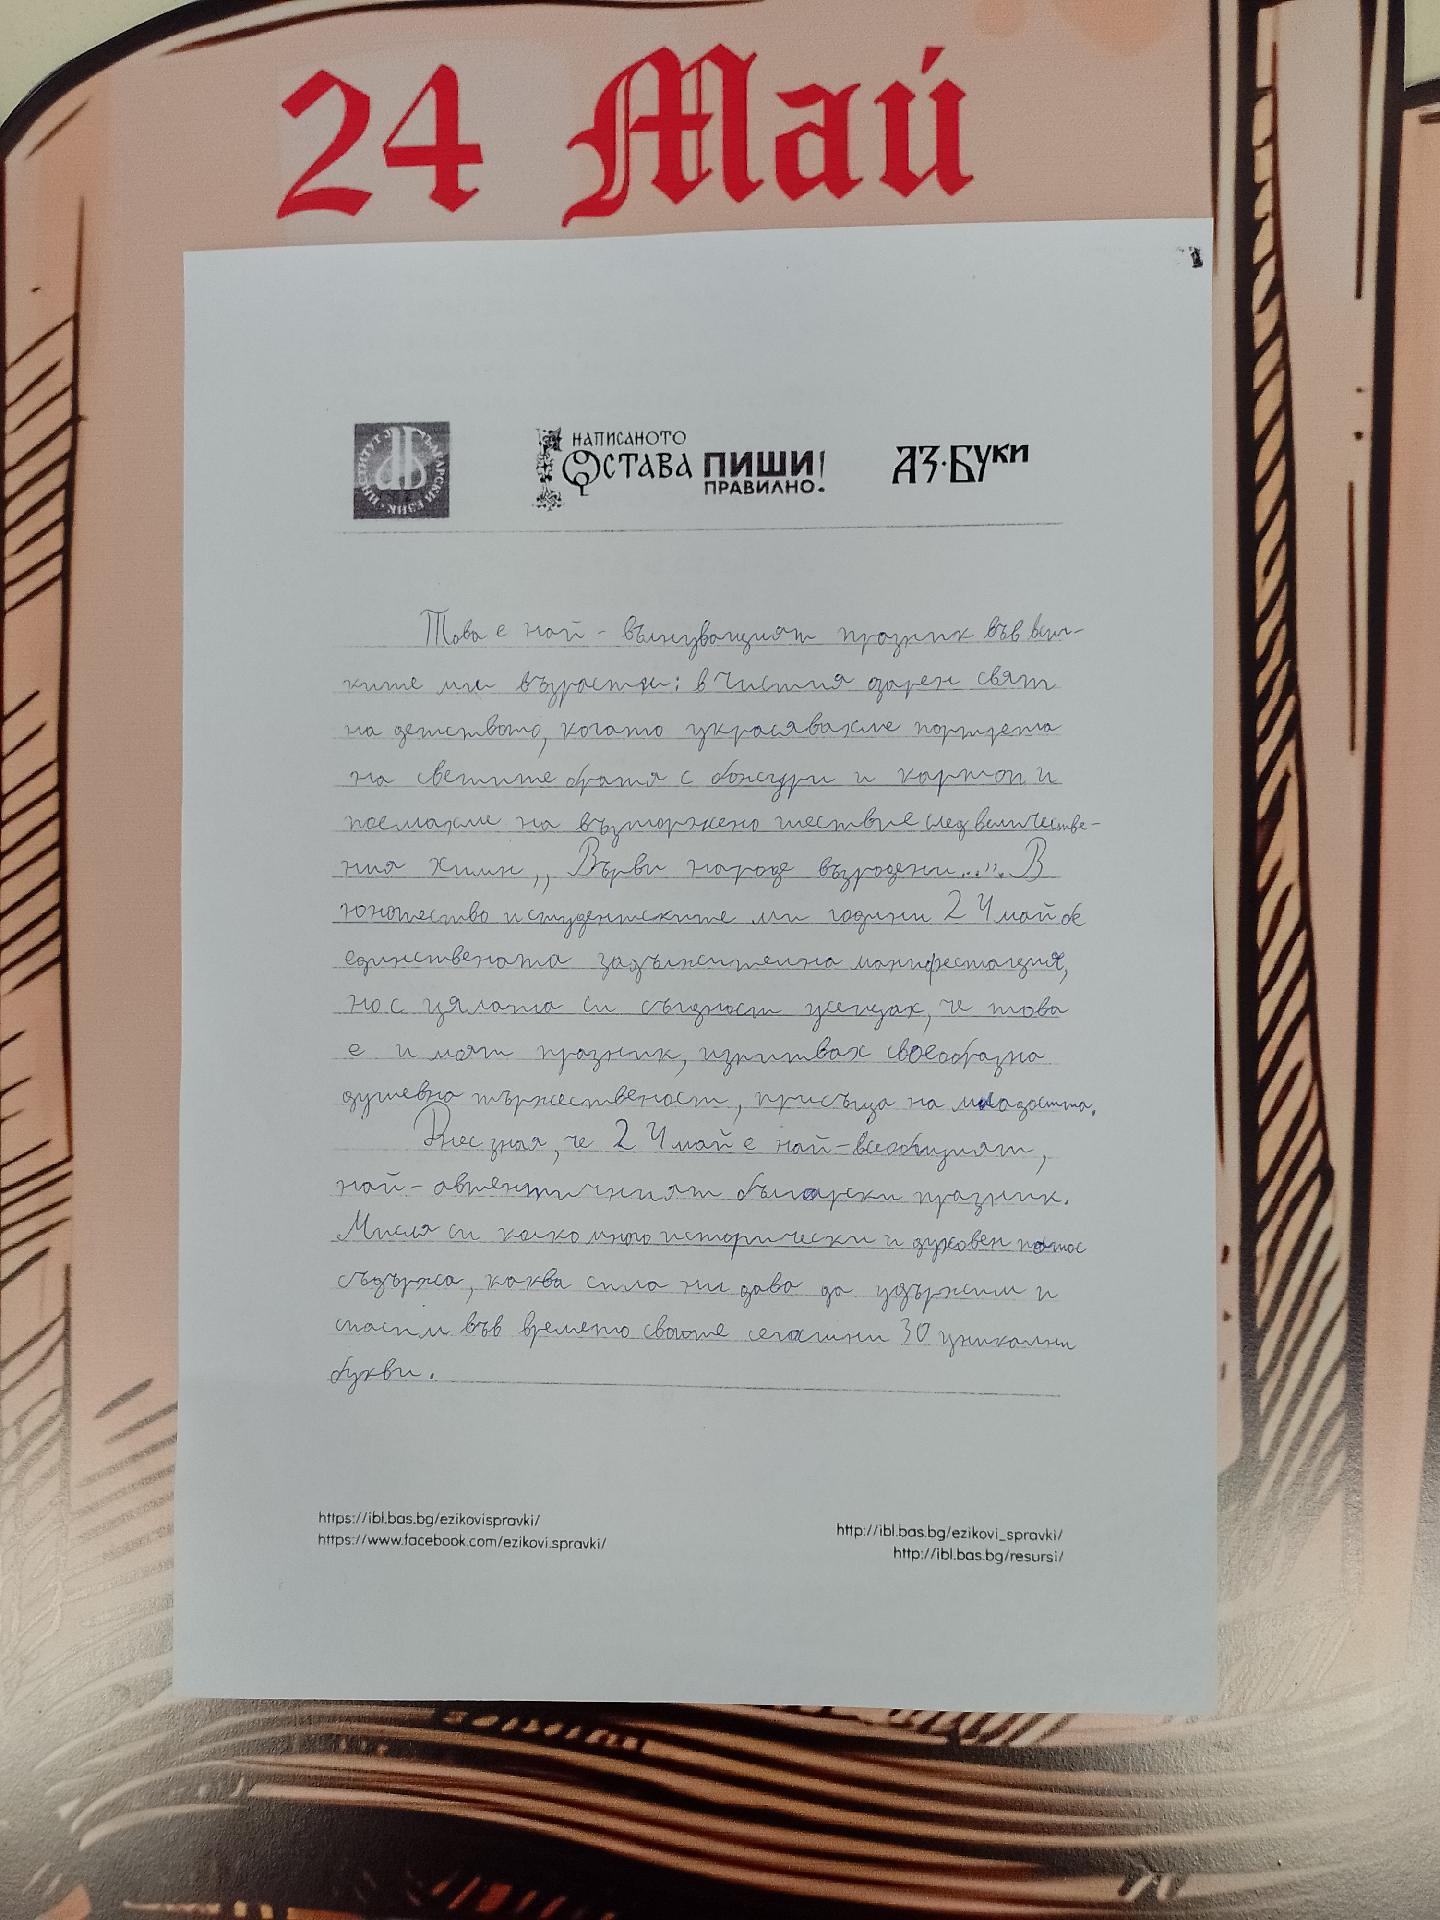 24 Май
ИНСТИТУТ ЗА БЪЛГАРСКИ ЕЗИК
НАПИСАНОТО
ОСТАВА ПИШИ
ПРАВИЛНО!
АЗ·БУКИ
Това е най-вълнуващият празник във всич-
ките ми възрасти: в чистия озарен свят
на детството, когато украсявахме портрета
на светите братя с божури и картон и
поемахме на възторжено шествие след величестве-
ния химн „Върви народе възродени...". В
юношество и студентските ми години 24 май бе
единствената задължителна манифестация,
но с цялата си същност усещах, че това
е и моят празник, изпитвах своеобразна
душевна тържественост, присъща на младостта.
Днес зная, че 24 май е най-всеобщият,
най-автентичният български празник.
Мисля си колко много исторически и духовен патос
съдържа, каква сила ни дава да удържим и
спасим във времето своите сегашни 30 уникални
букви.
https://ibl.bas.bg/ezikovispravki/
https://www.facebook.com/ezikovi.spravki/
http://ibl.bas.bg/ezikovi_spravki/
http://ibl.bas.bg/resursi/